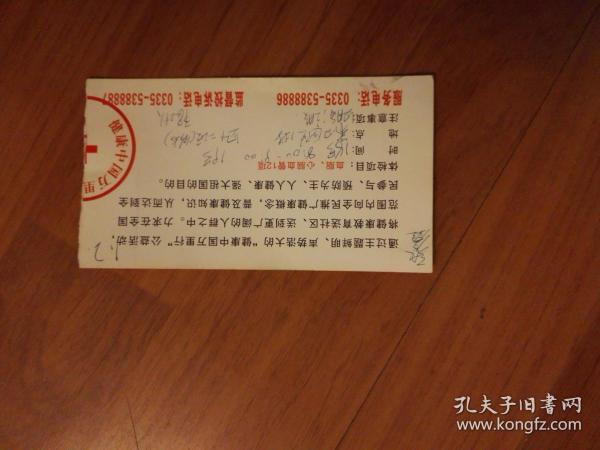 通过主题鲜明、声势浩大的“健康中国万里行”公益活动,
将健康教育送进社区、送到更广阔的人群之中。力求在全国
范围内全民全向推广健康概念,普及健康知识,从而达到全
民参与、预防为主、人人健康、强大祖国的目的。
体检项目:血脂、心脑血管12项
时 间:
地 点:
注意事项:
服务电话:0335-5388886 监督投诉电话:0335-5388887
健康中国万里
孔夫子旧书网
www.kongfz.com